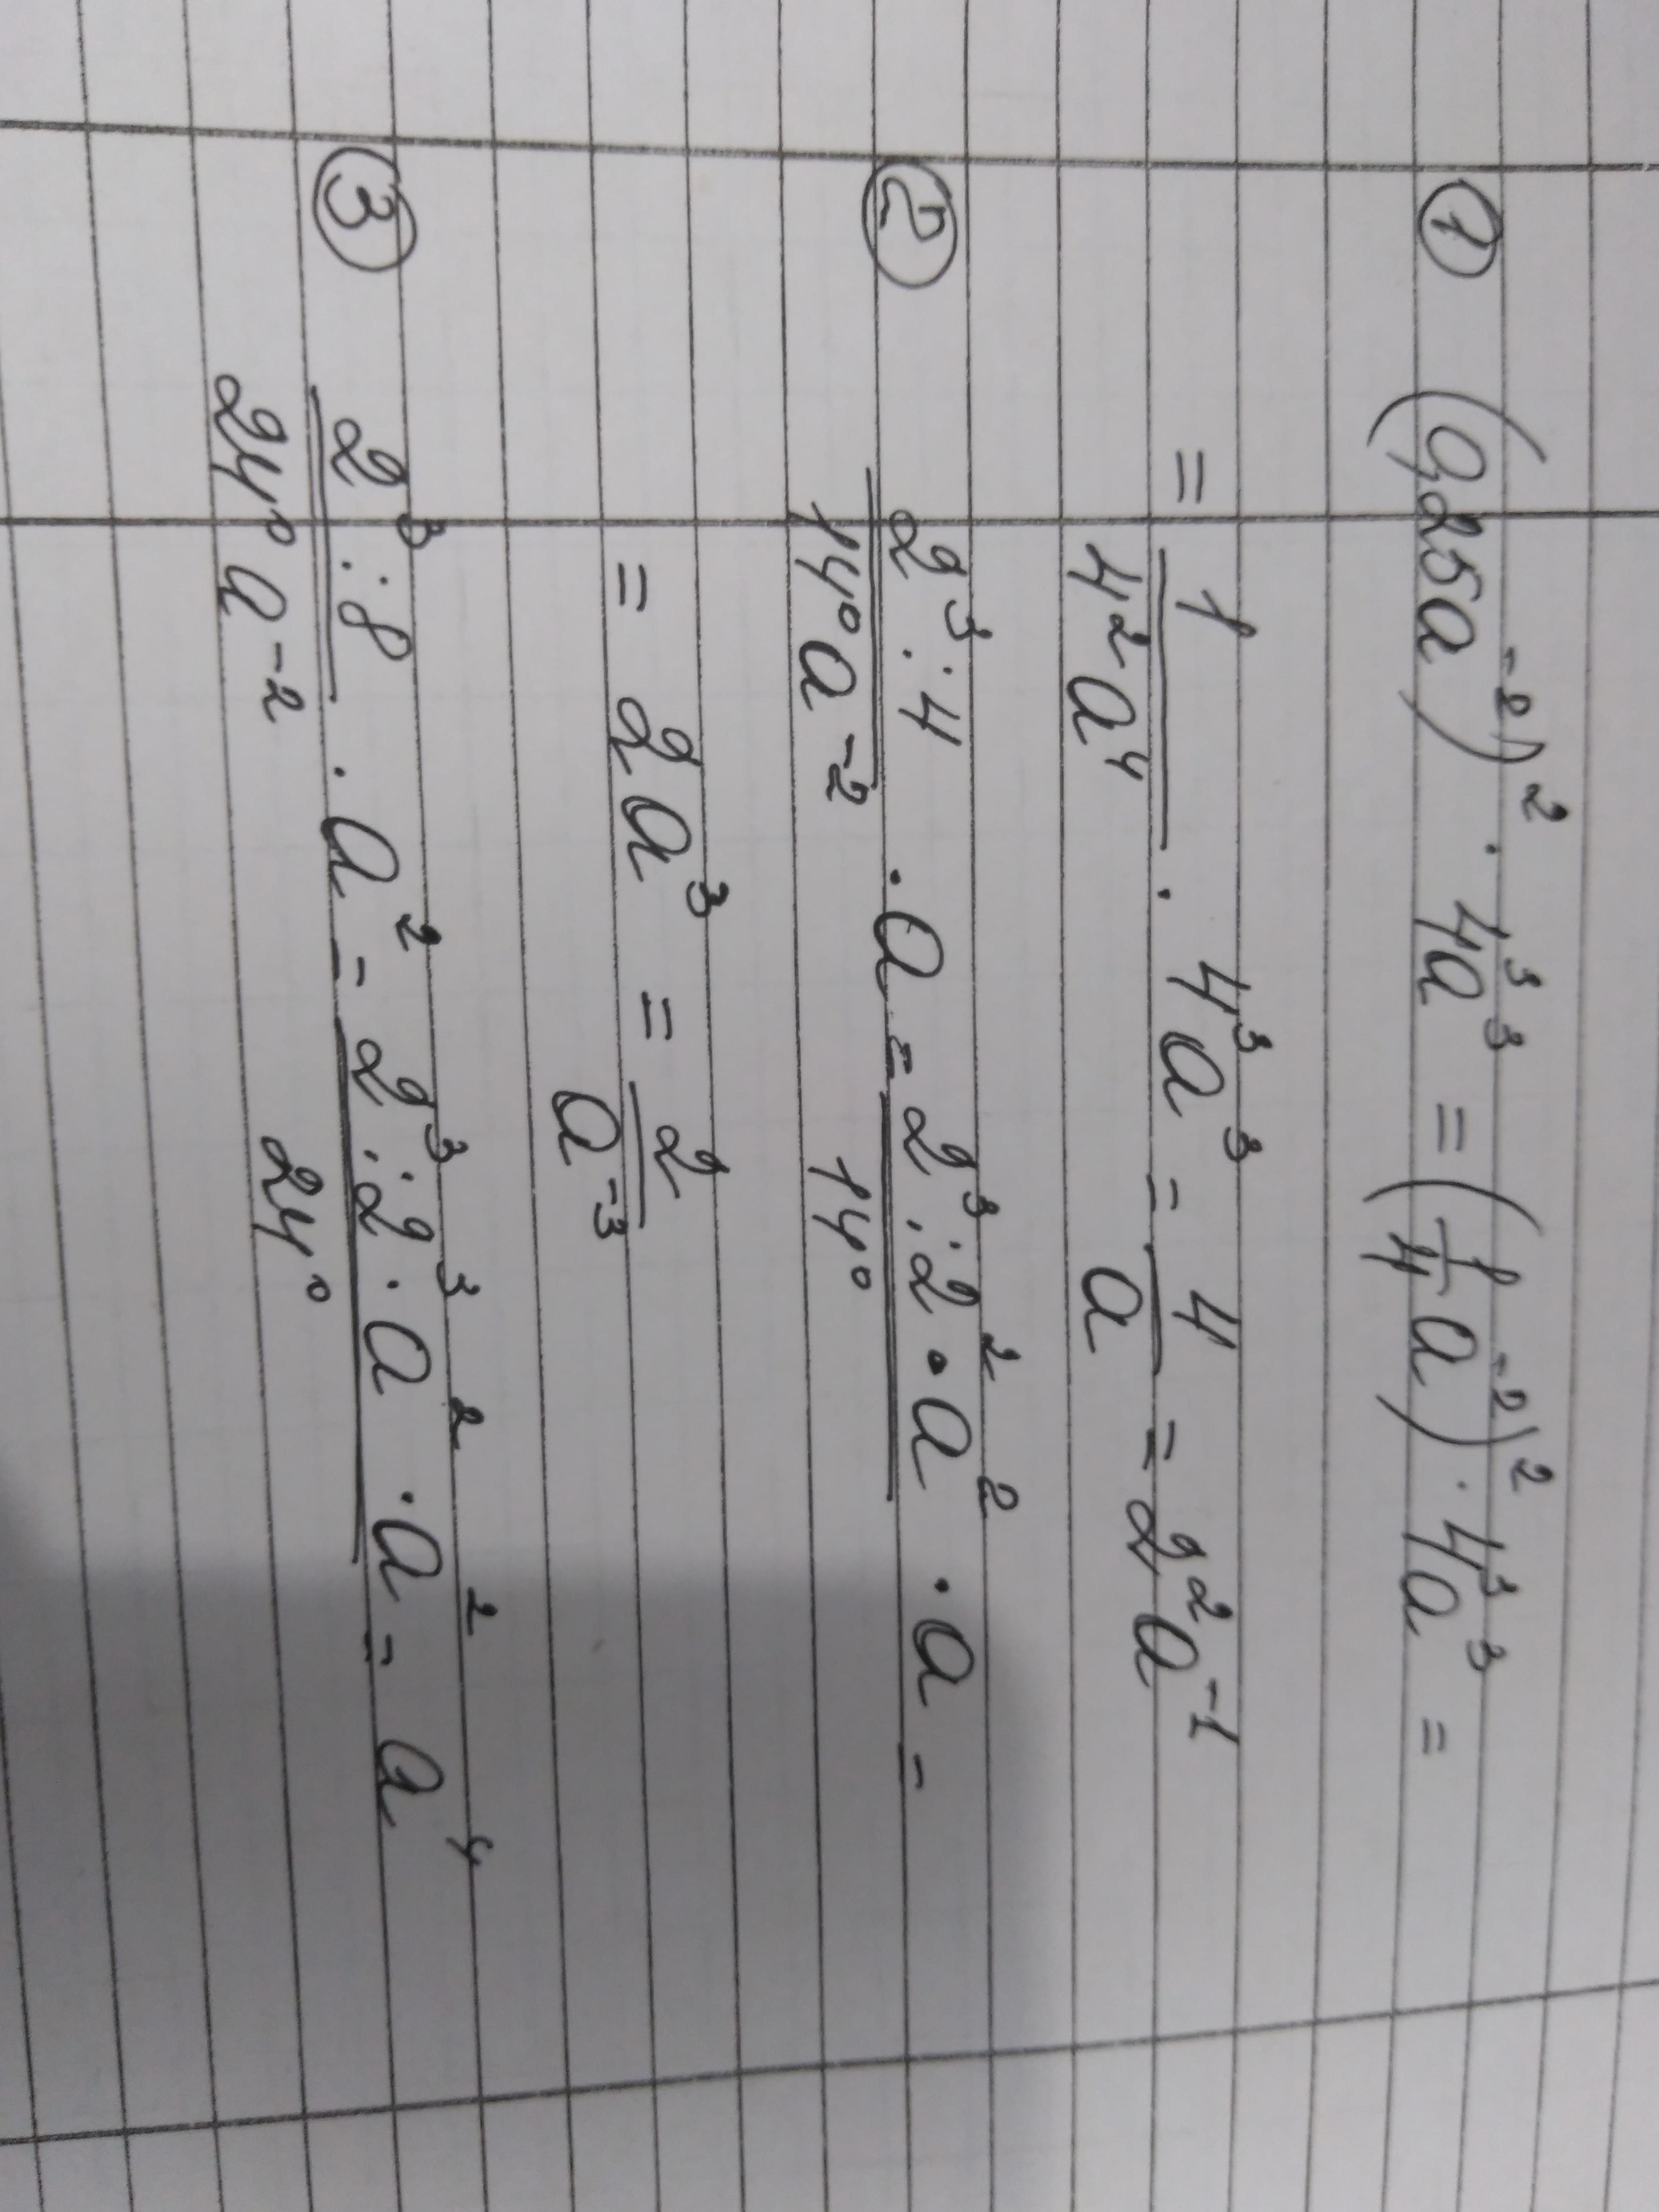 ① (0,25a⁻²)² · 4³a³ = (1/4 a⁻²)² · 4³a³ =
= 1/(4²a⁴) · 4³a³ = 4/a = 2²a⁻¹
② (2³ : 4)/(14⁰a⁻²) · a = (2³ : 2² · a²)/14⁰ · a =
= 2a³ = 2/a⁻³
③ (2³ : 8)/(24⁰a⁻²) · a² = (2³ : 2³ · a²)/24⁰ · a² = a⁴